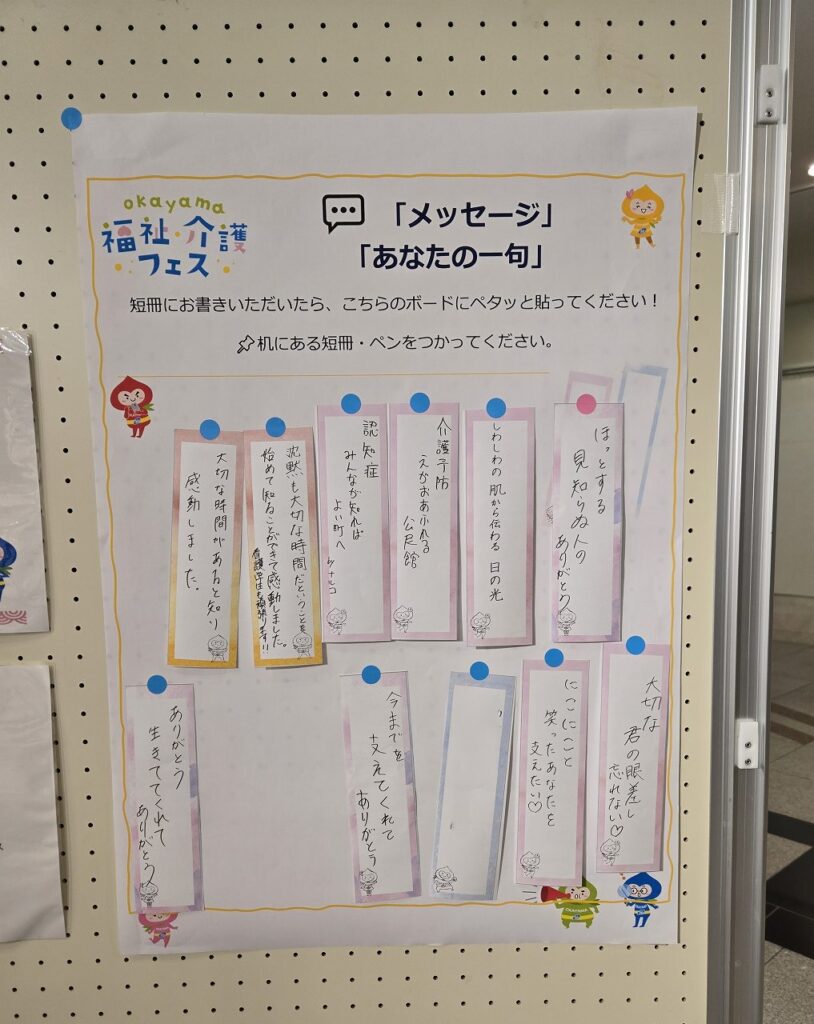 okayama
福祉・介護
フェス
「メッセージ」
「あなたの一句」
短冊にお書きいただいたら、こちらのボードにペタッと貼ってください！
机にある短冊・ペンをつかってください。
ほっとする
見知らぬ人の
ありがとう
しわしわの 肌から伝わる 日の光
介護予防
えがおあふれる
公民館
認知症
みんなが知れば
よい町へ
沈黙も大切な時間だということを
始めて知ることができて感動しました。
看護学生も頑張ります!!
大切な時間があると知り
感動しました。
大切な
君の眼差し
忘れない♡
にこにこと
笑ったあなたを
支えたい♡
今までを
支えてくれて
ありがとう
ありがとう
生きててくれて
ありがとう